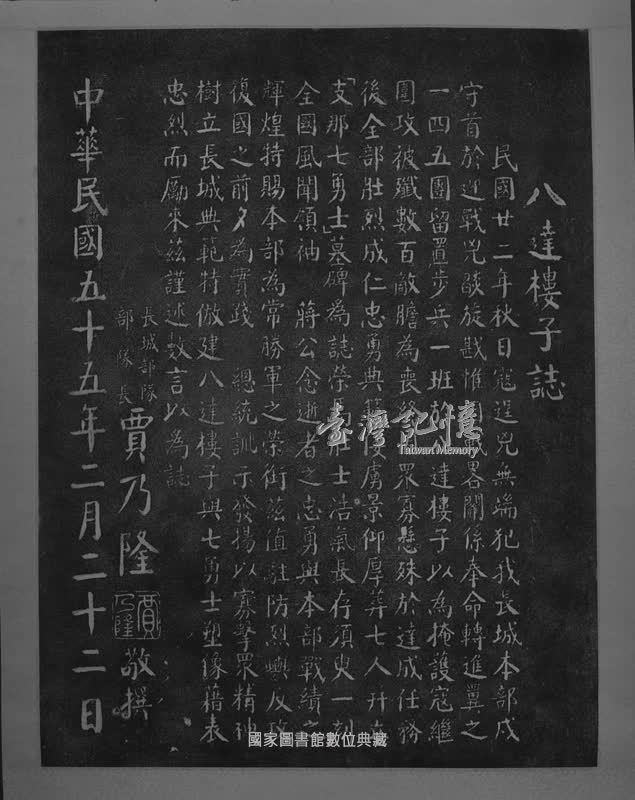 八達樓子誌
民國廿二年秋日寇逞兇無端犯我長城本部戍
守首於迎戰兇燄旋戢惟因戰畧關係奉命轉進冀之
一四五團留置步兵一班於八達樓子以為掩護寇繼
圍攻被殲數百敵膽為喪終以眾寡懸殊於達成任務
後全部壯烈成仁忠勇典範倭虜景仰厚葬七人并立
「支那七勇士」墓碑為誌榮哉壯士浩氣長存須臾一刻
全國風聞領袖 蔣公念逝者之忠勇與本部戰績之
輝煌特賜本部為常勝軍之榮銜茲值駐防烈嶼反攻
復國之前夕為實踐 總統訓示發揚以寡擊眾精神
樹立長城典範特倣建八達樓子與七勇士塑像藉表
忠烈而勵來茲謹述數言以為誌
長城部隊
部隊長
賈乃隆
賈乃隆
敬撰
中華民國五十五年二月二十二日
臺灣記憶
Taiwan Memory
國家圖書館數位典藏